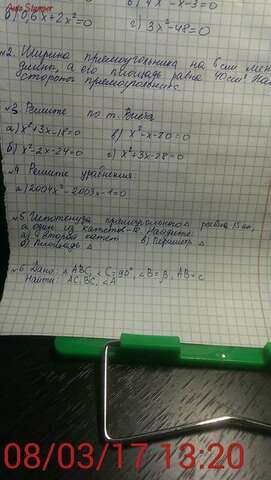 Auto Stamper
б) 0,6x+2x²=0
г) 3x²-48=0
№2. Ширина прямоугольника на 6 см мен
длины, а его площадь равна 40 см². Най
стороны прямоугольника.
№3 Решите по т. Виета
а) x²+3x-18=0 в) x²-x-20=0
б) x²-2x-24=0 г) x²+3x-28=0
№4 Решите уравнения
а) 2004x²-2003x-1=0
№5 Гипотенуза прямоугольного △ равна 15 см,
а один из катетов- Найдите:
а) второй катет в) Периметр △
б) Площадь △
№6 Дано: △ABC, ∠C=90°, ∠B=β, AB=c
Найти: AC, BC, ∠A
08/03/17 13:20